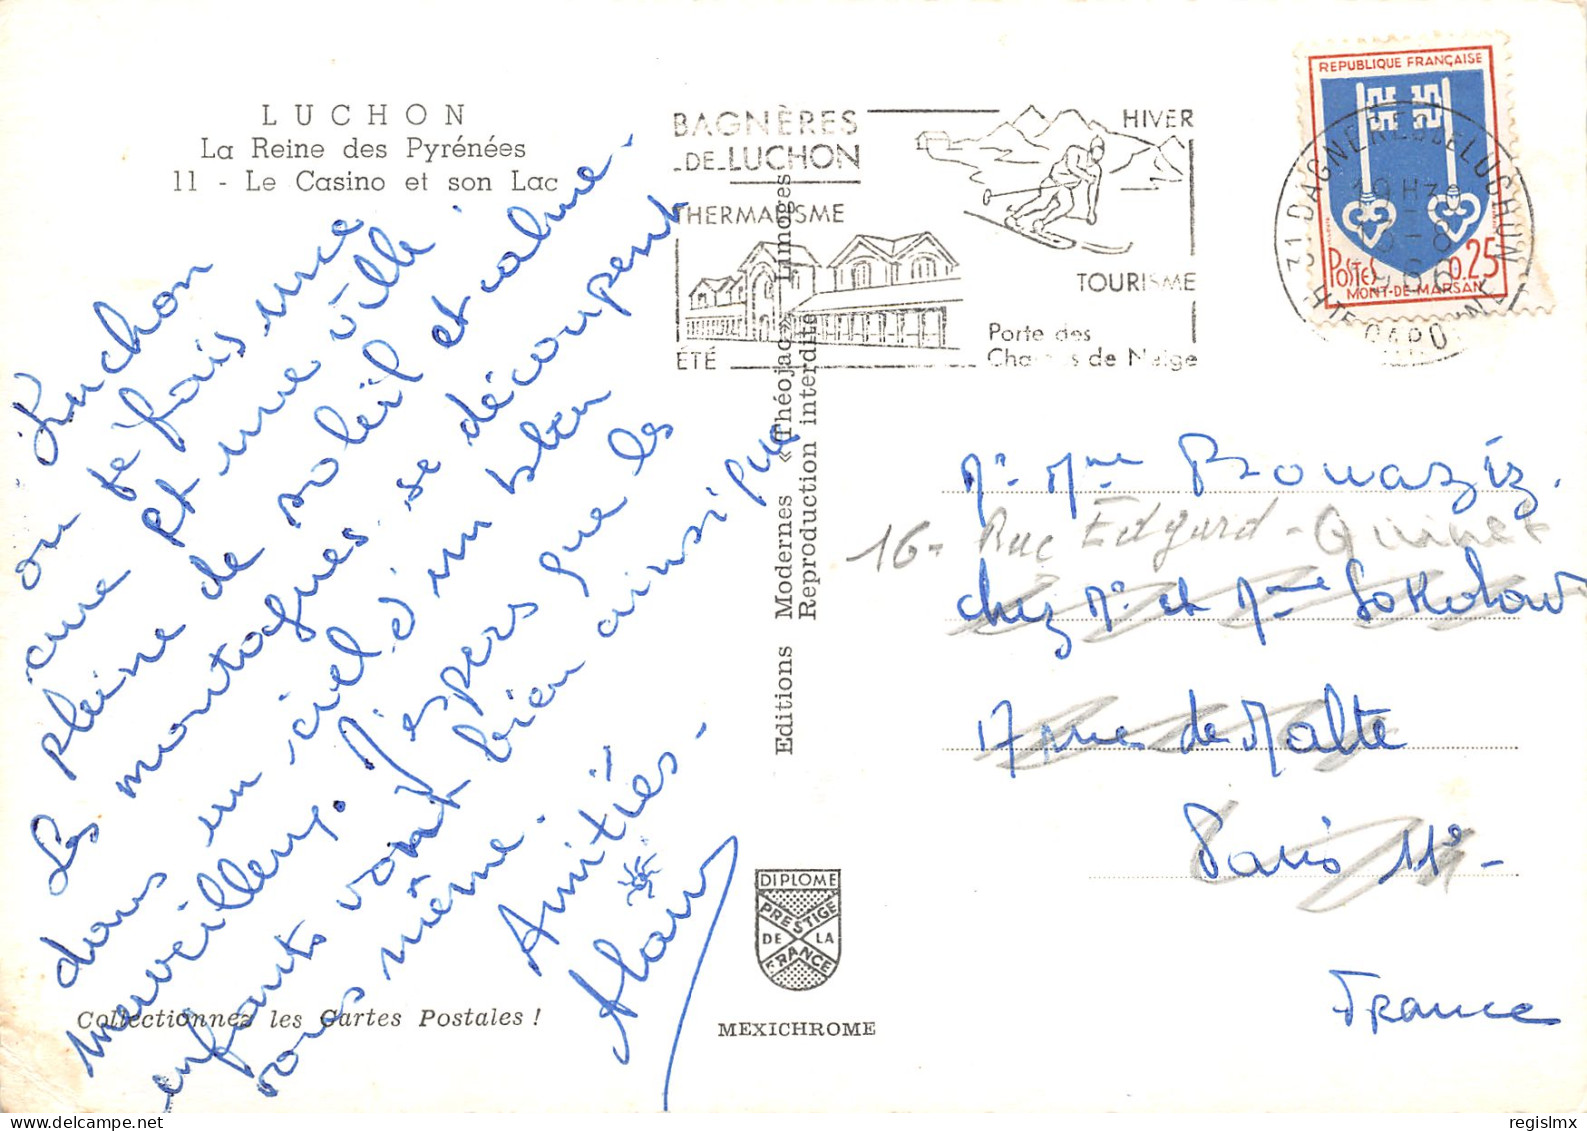 LUCHON
La Reine des Pyrénées
11 - Le Casino et son Lac
Luchon
on te fais une
cure et une ville
pleine de soleil et calme.
Les montagnes se découpent
dans un ciel d'un bleu
merveilleux. J'espers que les
enfants vont bien ainsi que
vous même.
Amitiés.
Alain
Collectionnez les Cartes Postales !
Editions Modernes «Théojac» Limoges
Reproduction interdite
DIPLOME
PRESTIGE
DE LA
FRANCE
MEXICHROME
BAGNÈRES
-DE-LUCHON
THERMALISME
ÉTÉ
HIVER
TOURISME
Porte des
Champs de Neige
REPUBLIQUE FRANÇAISE
POSTES 0.25
MONT-DE-MARSAN
31 BAGNERES DE LUCHON
19H30
-8
HTE GARONNE
Mr Mme Bouaziz.
16- Rue Edgard-Quinet
chez Mr et Mme Sokolow
17 rue de Malte
Paris 11e-
France
regislmx